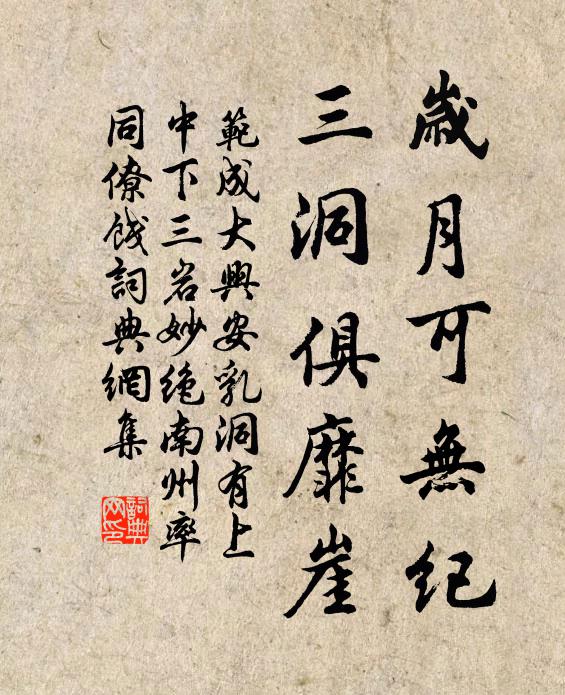 歲月可無紀
三洞俱靡崖
範成大興安乳洞有上
中下三岩妙绝南州率
同僚餞詞典網集
詞典网印